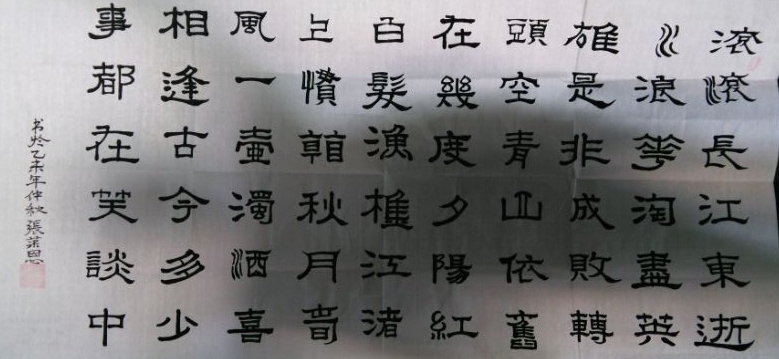 滾滾長江東逝
水浪華淘盡英
雄是非成敗轉
頭空青山依舊
在幾度夕陽紅
白髮漁樵江渚
上慣看秋月春
風一壺濁酒喜
相逢古今多少
事都在笑談中
書於乙未年仲秋張